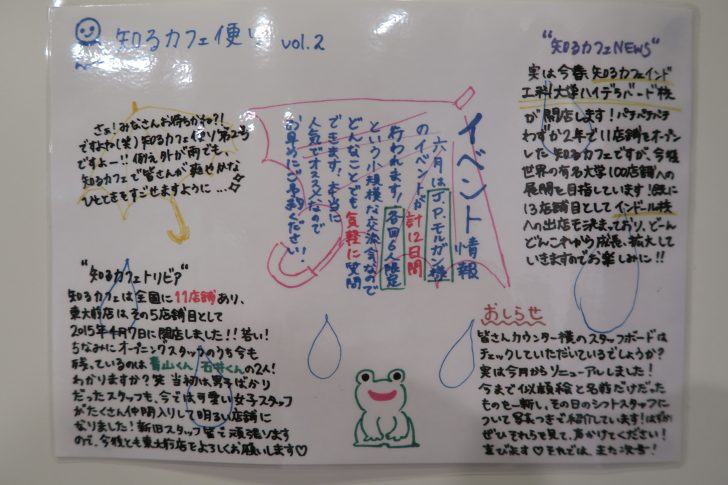 知るカフェ便り vol.2
さぁ!みなさんお待ちかね?!
ですよね(笑)知るカフェ便り第2号
ですよー!!例え外が雨でも、
知るカフェで皆さんが爽やかな
ひとときをすごせますように...
イベント情報
六月はJ.P.モルガン様
のイベントが計12日間
行われます!各回6人限定
という小規模な交流会なので
どんなことでも気軽に質問
できます!本当に
人気でオススメなので
お早めにご予約ください!
"知るカフェNEWS"
実は今春、知るカフェインド
工科大学ハイデラバード校
が開店します!パチパチパチ
わずか2年で11店舗をオープン
した知るカフェですが、今後
世界の有名大学100店舗への
展開を目指しています!既に
13店舗目としてインドール校
への出店も決まっており、どーん
どんこれから成長、拡大して
いきますのでお楽しみに!!
"知るカフェトリビア"
知るカフェは全国に11店舗あり、
東大前店はその5店舗目として
2015年4月7日に開店しました!!若い!
ちなみにオープニングスタッフのうち今も
残っているのは青山くん、石井くんの2人!
わかりますか?笑 当初は男子ばかり
だったスタッフも、今では可愛い女子スタッフ
がたくさん仲間入りして明るい店舗に
なりました!新旧スタッフ皆で頑張ります
ので、今後とも東大前店をよろしくお願いします♡
おしらせ
皆さんカウンター横のスタッフボードは
チェックしていただいているでしょうか?
実は今月からリニューアルしました!
今まで似顔絵と名前だけだった
ものを一新し、その日のシフトスタッフに
ついて写真つきで紹介しています!
ぜひそれらを見て、声かけてください!
喜びます♡それでは、また次号!